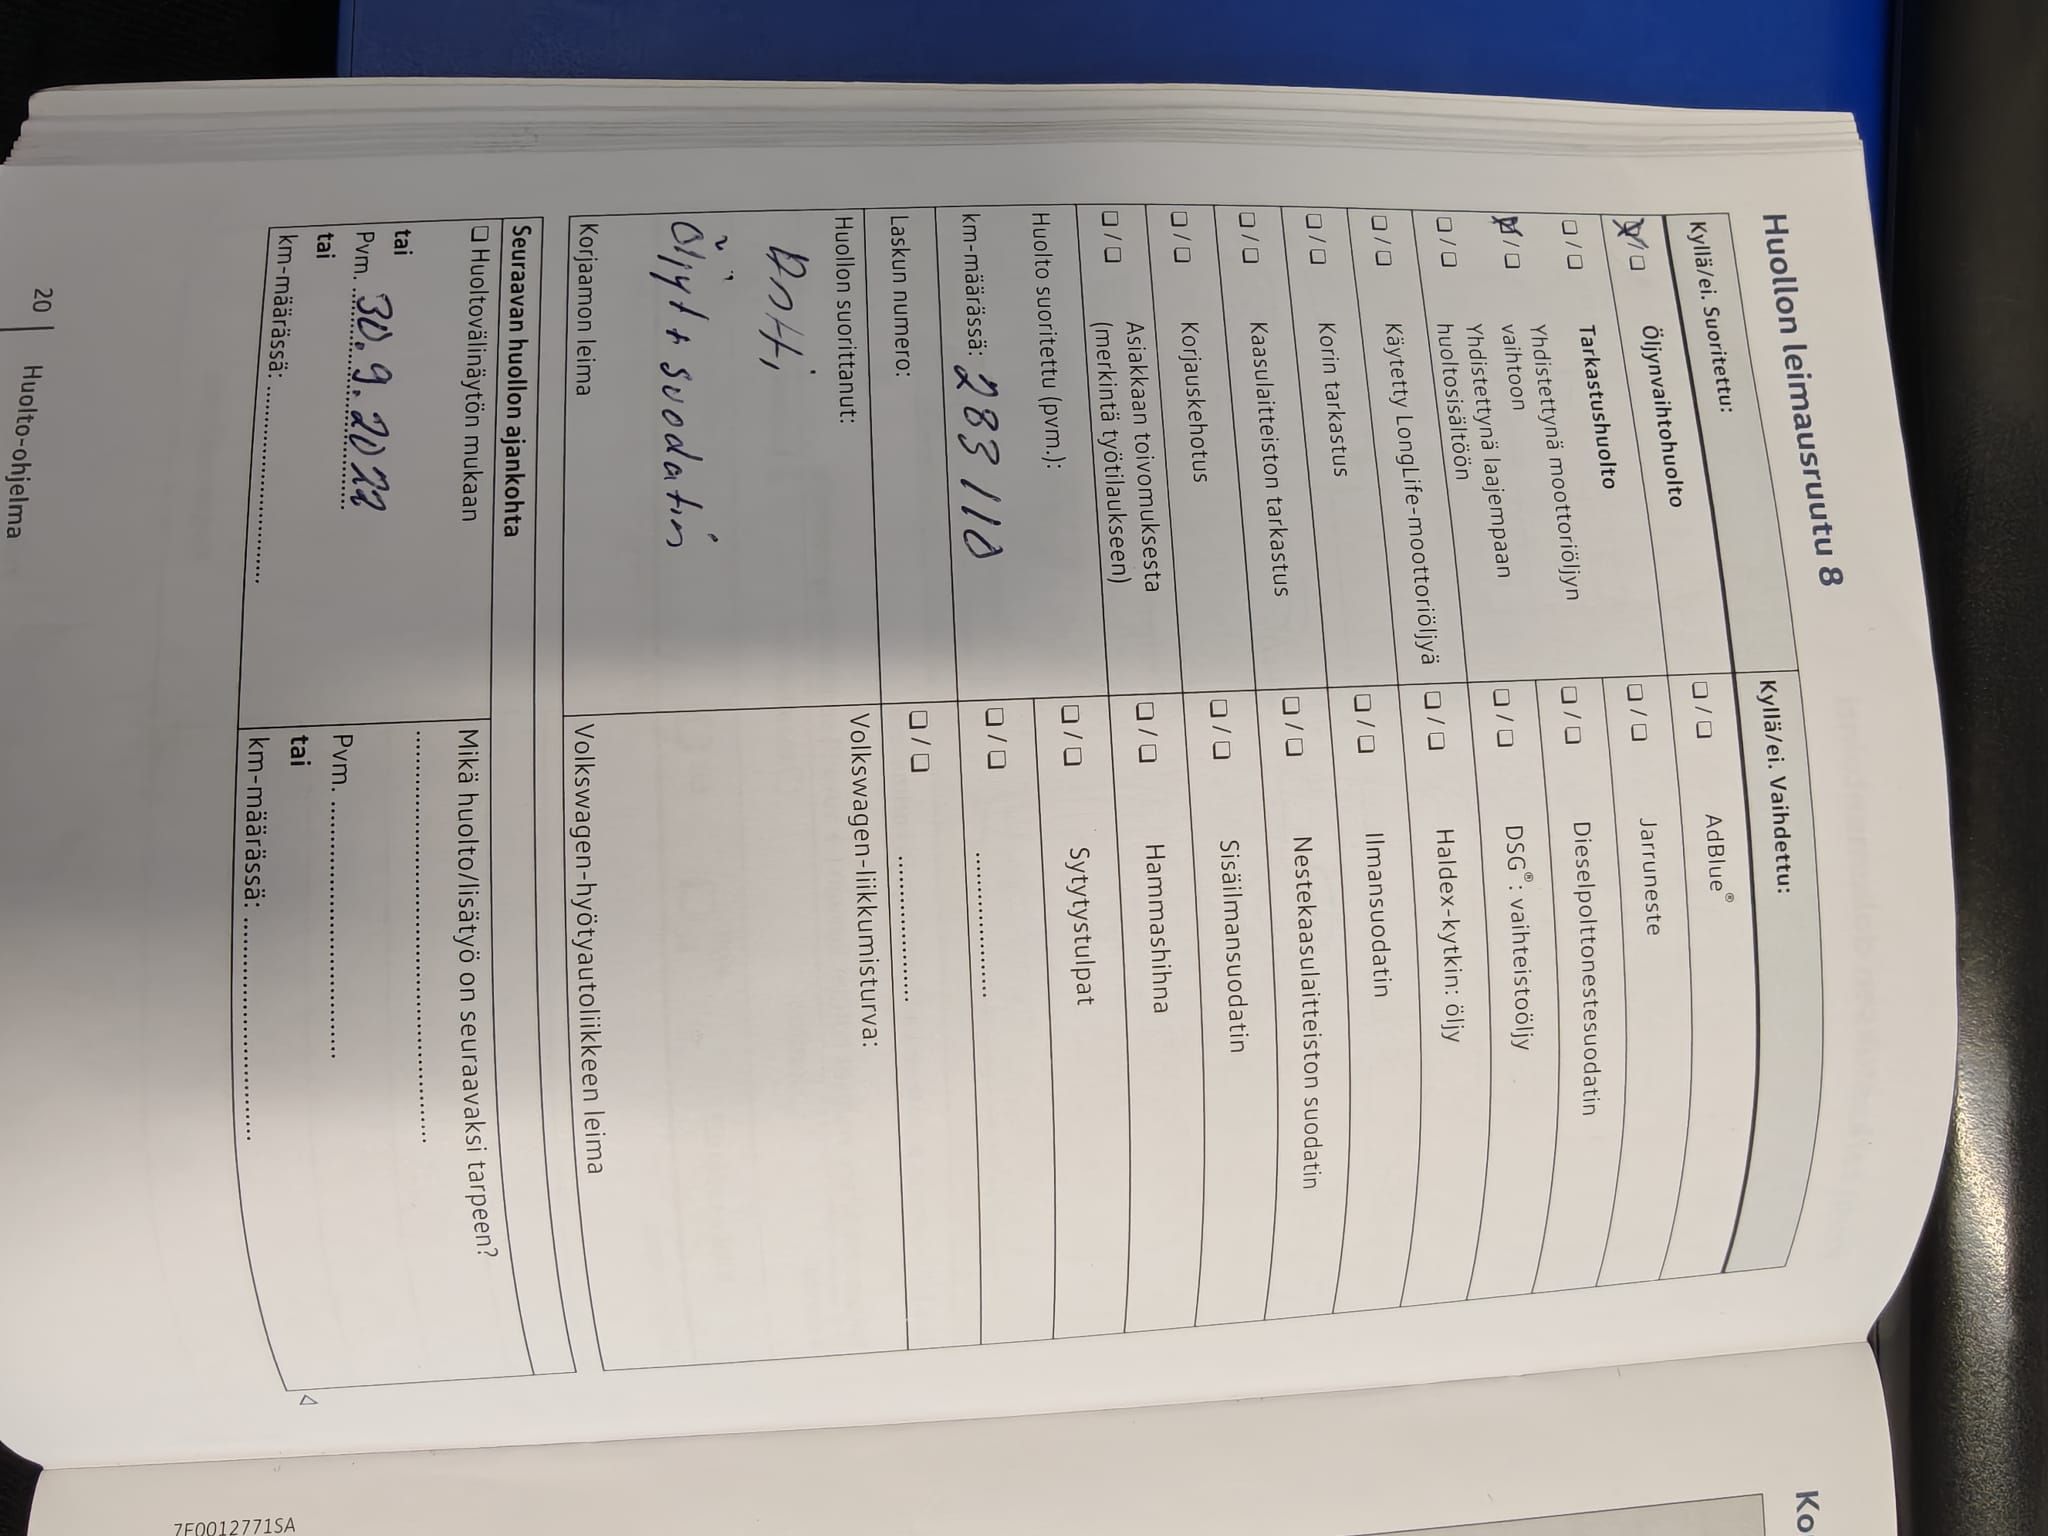 Huollon leimausruutu 8
Kyllä/ei. Suoritettu:
❏/❏ Öljynvaihtohuolto
Tarkastushuolto
❏/❏ Yhdistettynä moottoriöljyn
vaihtoon
❏/❏ Yhdistettynä laajempaan
huoltosisältöön
❏/❏ Käytetty LongLife-moottoriöljyä
❏/❏ Korin tarkastus
❏/❏ Kaasulaitteiston tarkastus
❏/❏ Korjauskehotus
❏/❏ Asiakkaan toivomuksesta
(merkintä työtilaukseen)
Huolto suoritettu (pvm.):
km-määrässä: 283 110
Laskun numero:
Huollon suorittanut:
Antti
Öljyt + suodatin
Korjaamon leima
Kyllä/ei. Vaihdettu:
❏/❏ AdBlue®
❏/❏ Jarruneste
❏/❏ Dieselpolttonestesuodatin
❏/❏ DSG®: vaihteistoöljy
❏/❏ Haldex-kytkin: öljy
❏/❏ Ilmansuodatin
❏/❏ Nestekaasulaitteiston suodatin
❏/❏ Sisäilmansuodatin
❏/❏ Hammashihna
❏/❏ Sytytystulpat
❏/❏ ................
❏/❏ ................
Volkswagen-liikkumisturva:
Volkswagen-hyötyautoliikkeen leima
Seuraavan huollon ajankohta
❏ Huoltovälinäytön mukaan
tai
Pvm. 30.9.2022
tai
km-määrässä: ................
Mikä huolto/lisätyö on seuraavaksi tarpeen?
................
Pvm. ................
tai
km-määrässä: ................
20 | Huolto-ohjelma
7F0012771SA